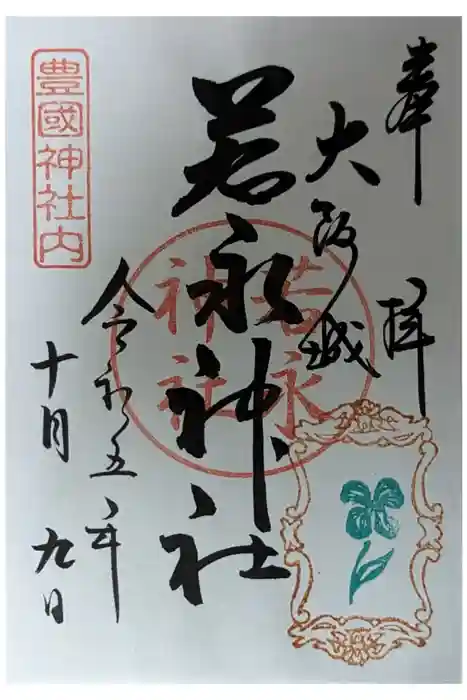 奉拝
大阪城
若永神社
若永神社
令和五年
十月九日
豊國神社内